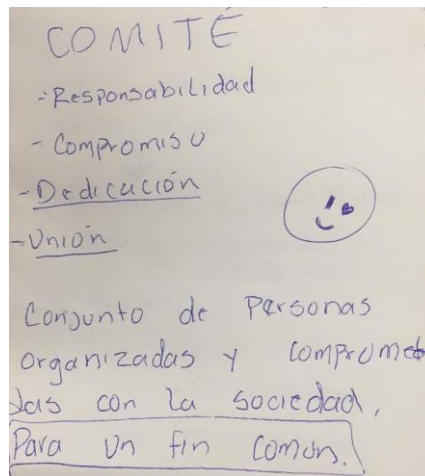 COMITÉ
- Responsabilidad
- Compromiso
- Dedicación
- Unión
Conjunto de Personas
organizadas y compromet
das con la sociedad,
Para un fin común.